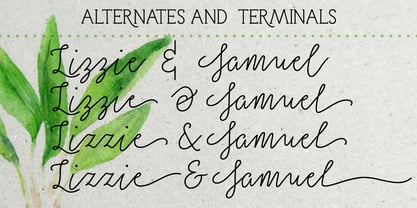 ALTERNATES AND TERMINALS
Lizzie & Samuel
Lizzie & Samuel
Lizzie & Samuel
Lizzie & Samuel